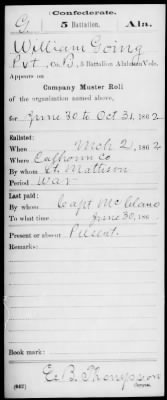 Confederate.
G 5 Battalion, Ala.
William Going
Pvt, Co. B, 5 Battalion Alabama Vols.
Appears on
Company Muster Roll
of the organization named above,
for June 30 to Oct 31, 1862
Enlisted:
When Mch 2, 1862
Where Calhoun Co
By whom Lt. Mattison
Period War
Last paid:
By whom Capt
To what time June 30, 186
Present or absent Present
Remarks:
Book mark:
E. B. Thompson
(642) Copyist.